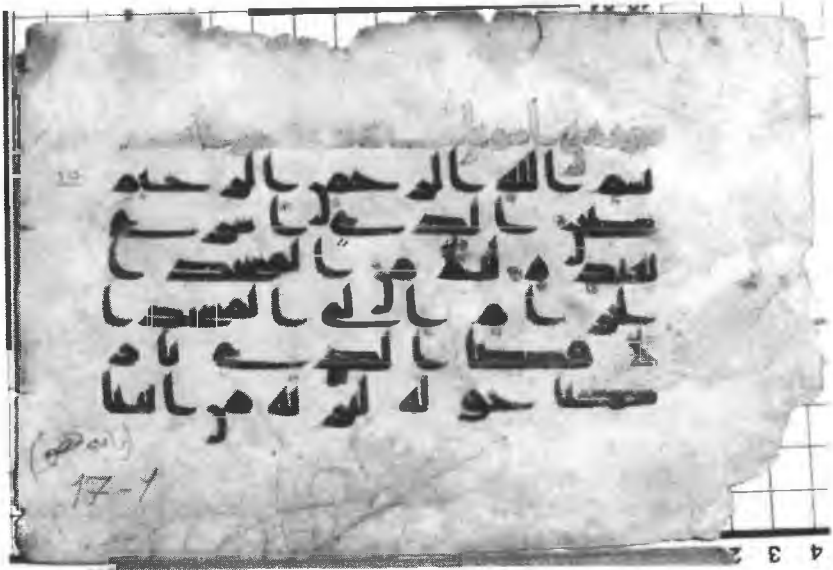 بسم الله الرحمن الرحيم
سبحن الذي اسرى
بعبده ليلا من المسجد ا
لحرام الى المسجد ا
لاقصا الذي با
ركنا حوله لنريه من ايتنا
17-1
2 3 4